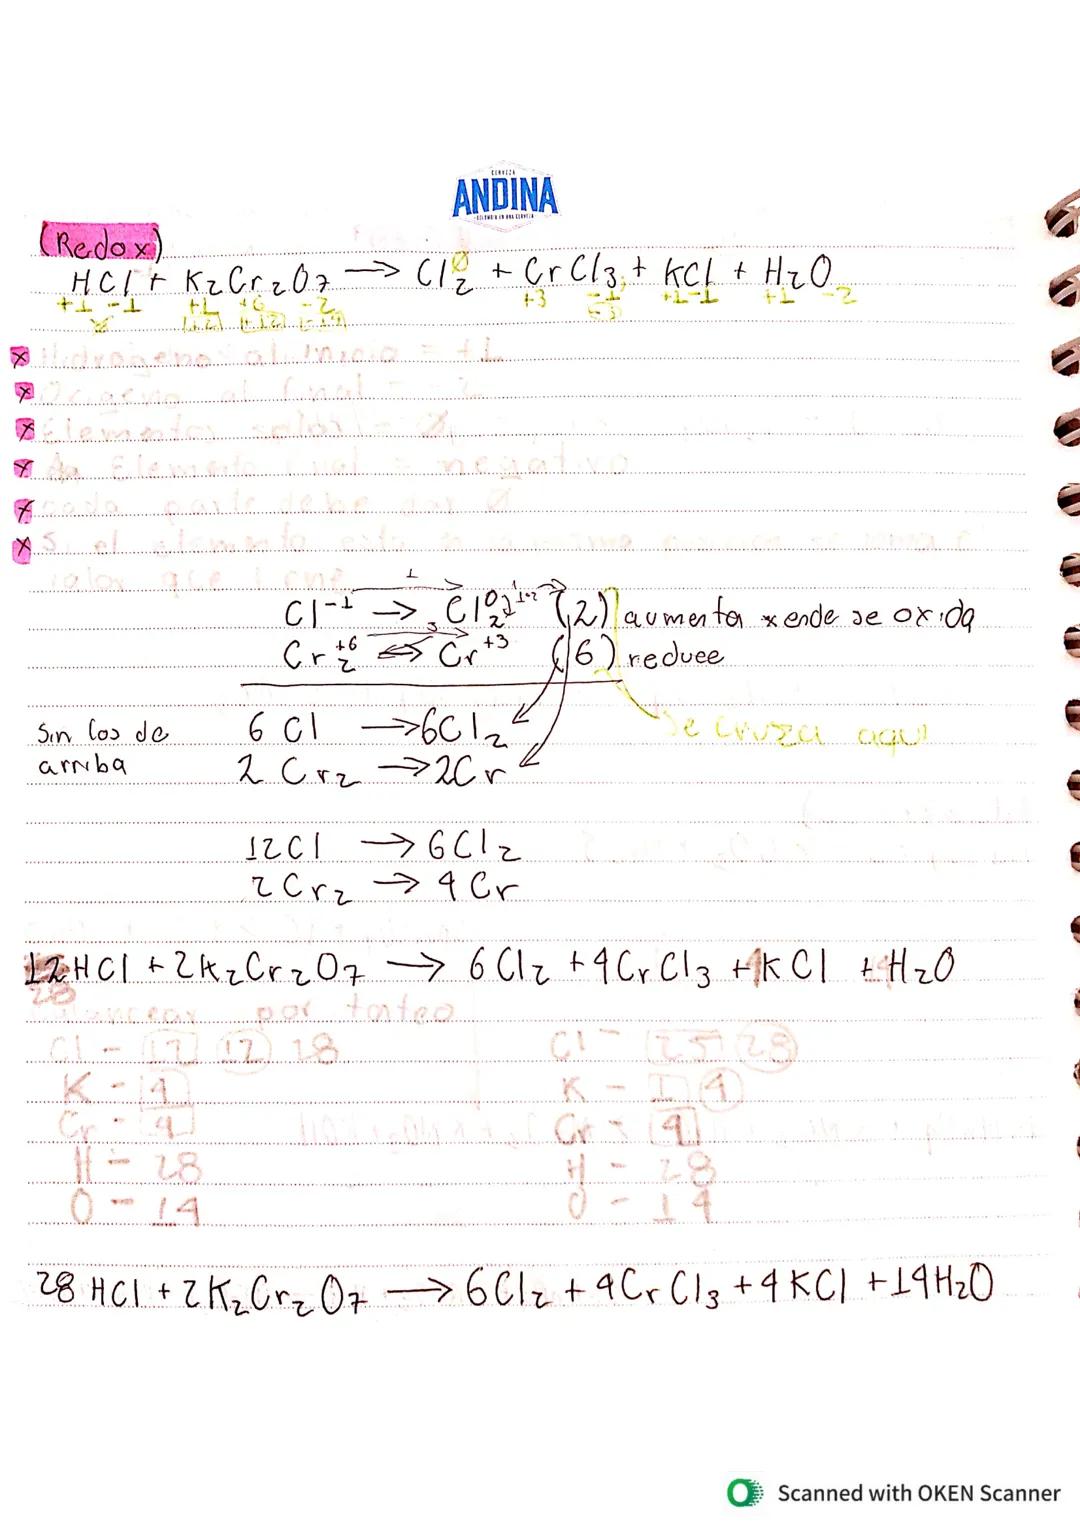 CERVEZA
ANDINA
(Redox)
HCl + K2Cr2O7 → Cl2 0 + CrCl3 + KCl + H2O
+1 -1 +1 +6 -2 +3 -1 +1 -1 +1 -2
[+2] [+12] [-14] [-3]
x Hidrogeno al inicio = +1
x Oxigeno al final = -2
x Elementos solos = Ø
x Elemento final = negativo
x cada parte debe dar Ø
x Si el elemento esta
valor que tiene
1
Cl -1 → Cl2 0 1·2 (2) aumenta x ende se oxida
3
Cr2 +6 ⇔ Cr +3 (6) reduce
Sin los de 6 Cl → 6Cl2 Se cruza aqui
arriba 2 Cr2 → 2Cr
12Cl → 6Cl2
2Cr2 → 4Cr
12HCl + 2K2Cr2O7 → 6Cl2 + 4CrCl3 + 4KCl + H2O
28
Balancear por tanteo
Cl - 12 12 28 Cl - 25 28
K - 4 K - 1 4
Cr - 4 Cr - 4
H - 28 H - 28
O - 14 O - 14
28 HCl + 2K2Cr2O7 → 6Cl2 + 4CrCl3 + 4KCl + 14H2O
Scanned with OKEN Scanner